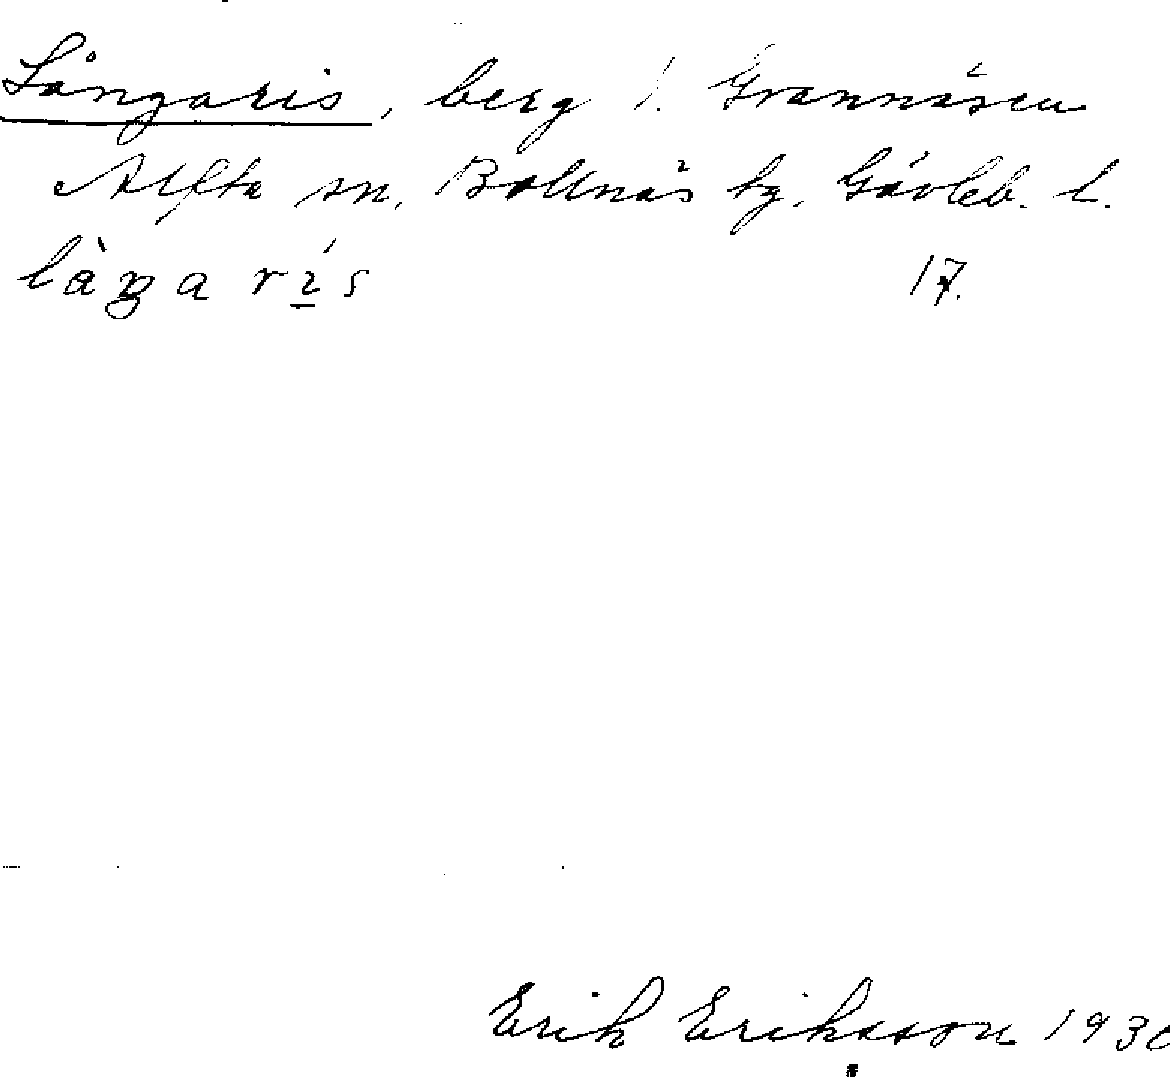 Långaris, berg i Grannäsen
Alfta sn. Bollnäs tg. Gävleb. l.
17.
Erik Eriksson 1930